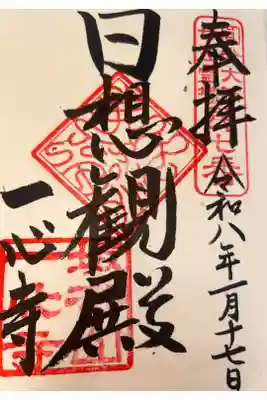 奉拝
令和八年一月十七日
日想観殿
一心寺